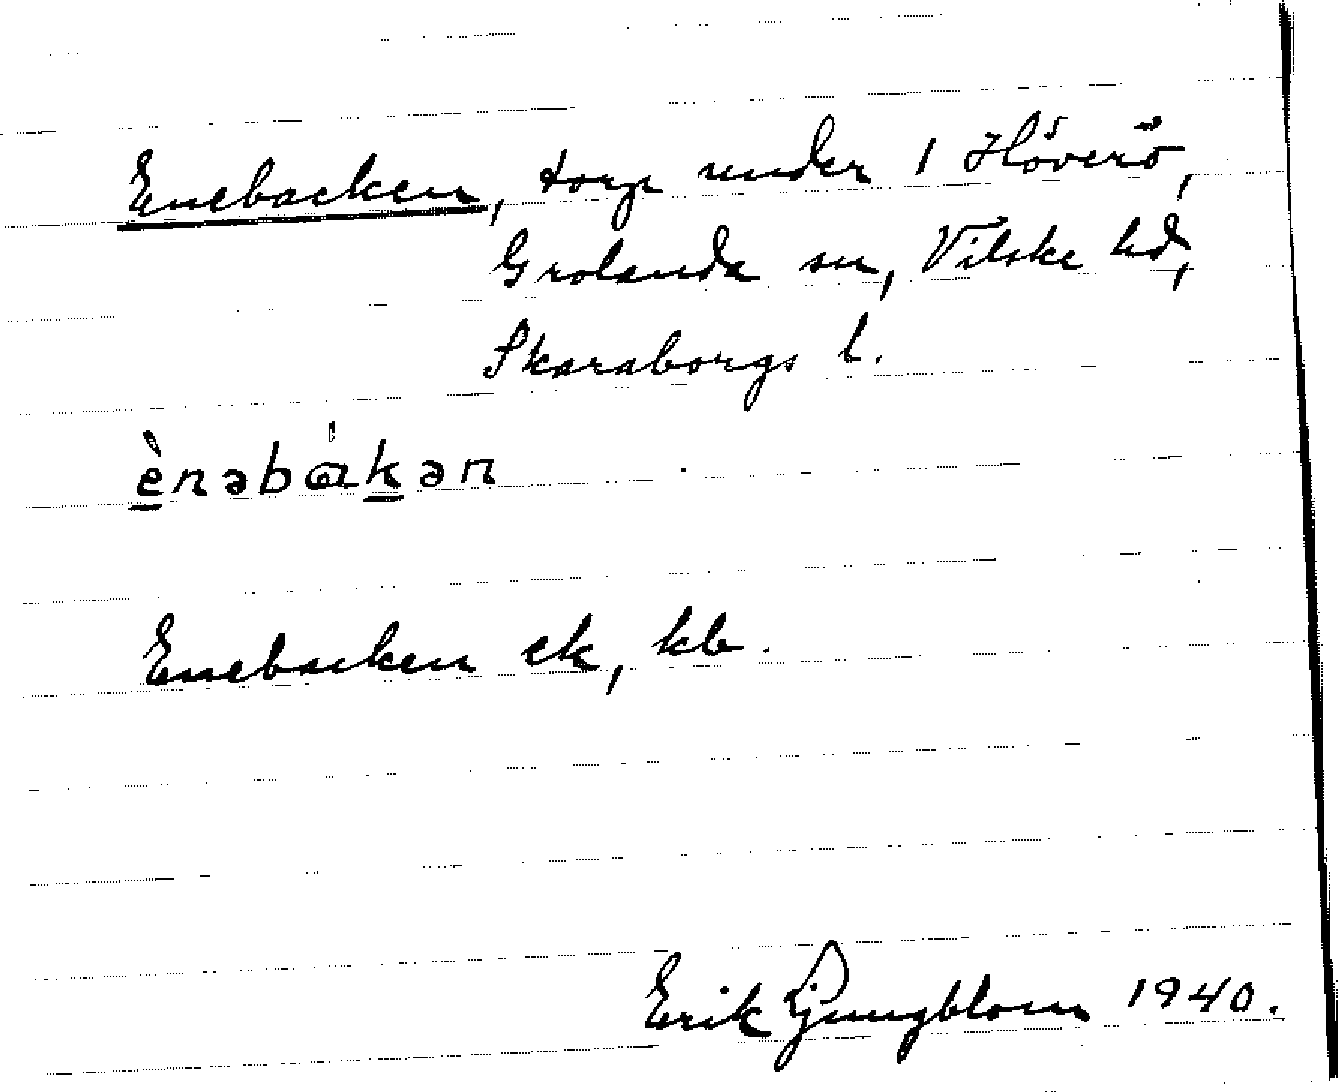 Enebacken, torp under 1 Höverö,
Grolanda sn, Vilske hd,
Skaraborgs l.
ènəbákən
Enebacken ek, kb.
Erik Ljungblom 1940.